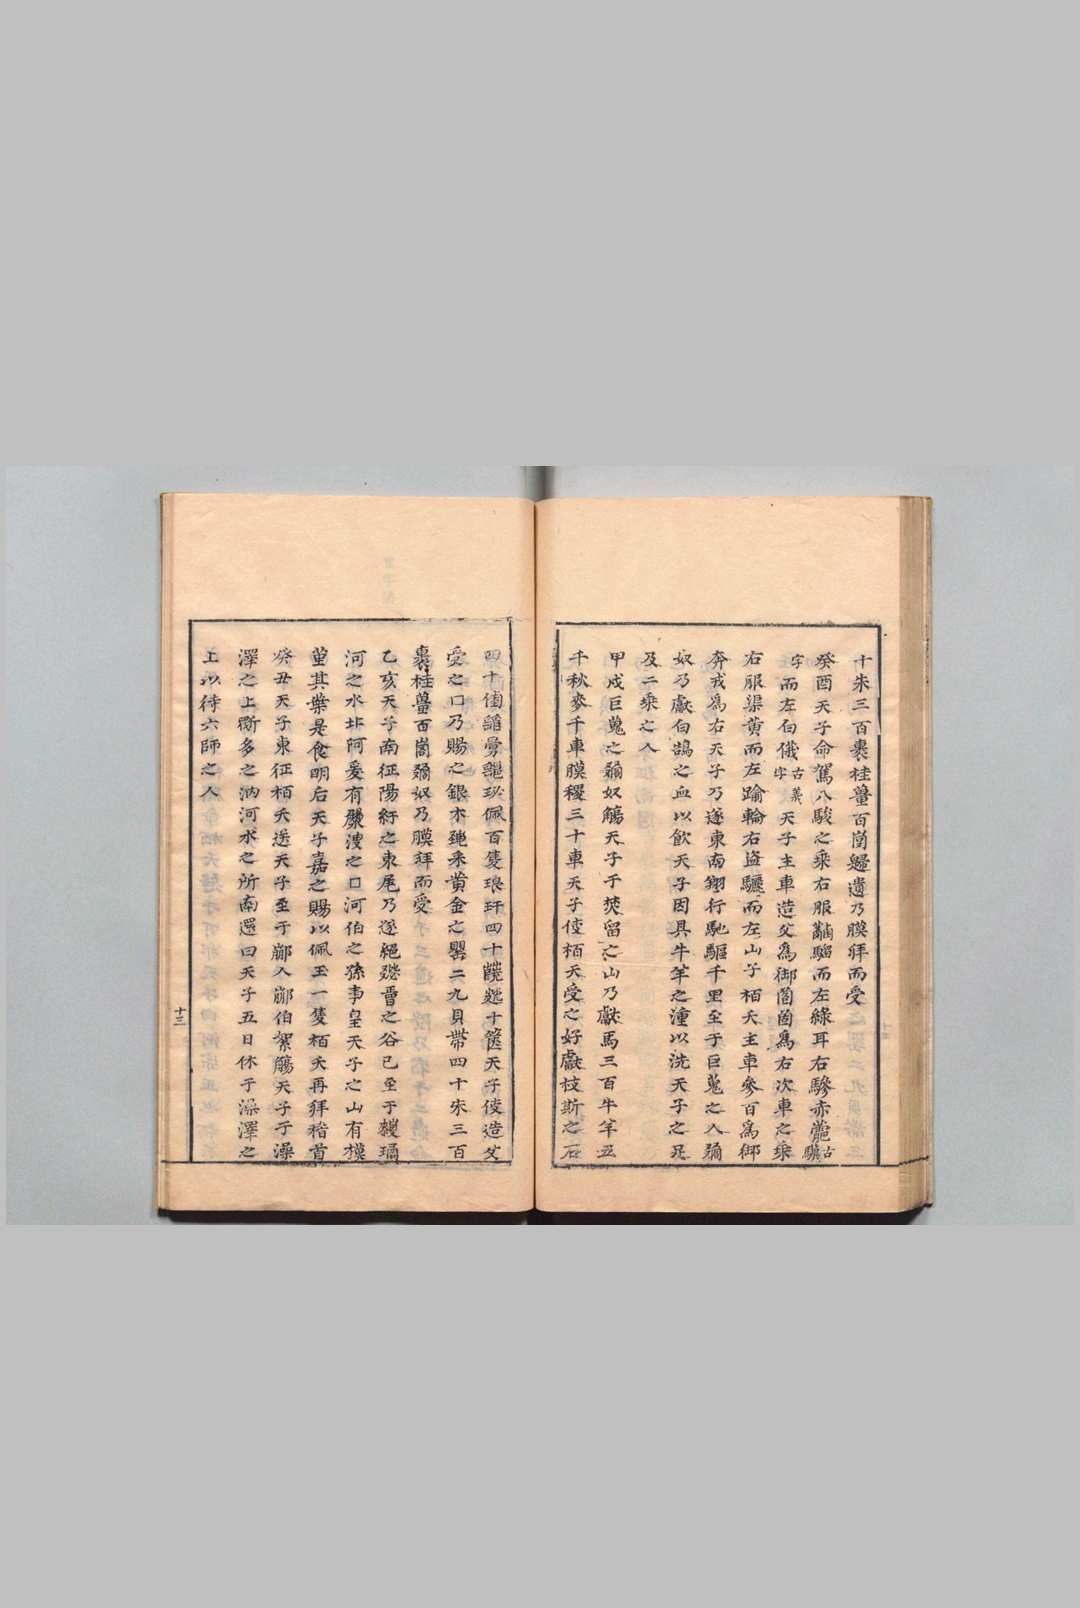 十朱三百裹桂薑百㟴歸遺乃膜拜而受
癸酉天子命駕八駿之乘右服𩧢騮而左綠耳右驂赤蘎古驥
字而左白儀古義字天子主車造父為御𦮼𦮼為右次車之乘
右服渠黄而左踰輪右盜驪而左山子栢夭主車參百為御
奔戎為右天子乃遂東南翔行馳驅千里至于巨蒐之人𦃇
奴乃獻白鵠之血以飲天子因具牛羊之湩以洗天子之足
及二乘之人
甲戌巨蒐之𦃇奴觴天子于焚留之山乃獻馬三百牛羊五
千秋麥千車膜稷三十車天子使栢夭受之好獻枝斯之石
四十佩百隻琅玕四十十篋天子使造父
受之口乃賜之銀木采黄金之罌二九貝帶四十朱三百
裹桂薑百㟴奴乃膜拜而受
乙亥天子南征陽紆之東尾乃遂絕之谷已至于
河之水北阿爰有之口河伯之孫事皇天子之山有模
堇其葉是食明后天子嘉之賜以佩玉一隻栢夭再拜稽首
癸丑天子東征栢夭送天子至于䣙人䣙伯絮觴天子于澡
澤之上多之汭河水之所南還曰天子五日休于澡澤之
上以待六師之人
十三